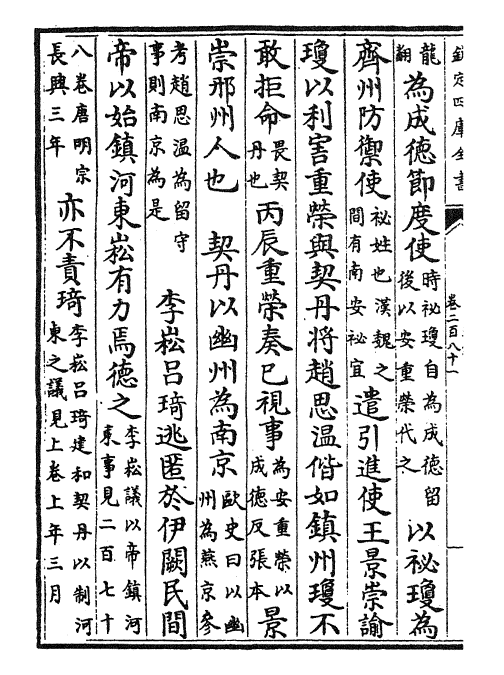 欽定四庫全書
卷二百八十一
龍翻為成德節度使時祕瓊自為成德留後以安重榮代之以祕瓊為
齊州防禦使祕姓也漢魏之間有南安祕宜遣引進使王景崇諭
瓊以利害重榮與契丹將趙思温偕如鎮州瓊不
敢拒命畏契丹也丙辰重榮奏已視事為安重榮以成德反張本景
崇邢州人也 契丹以幽州為南京歐史曰以幽州為燕京參
考趙思温為留守事則南京為是 李崧呂琦逃匿於伊闕民間
帝以始鎮河東崧有力焉德之李崧議以帝鎮河東事見二百七十
八卷唐明宗長興三年亦不責琦李崧呂琦建和契丹以制河東之議見上卷上年三月